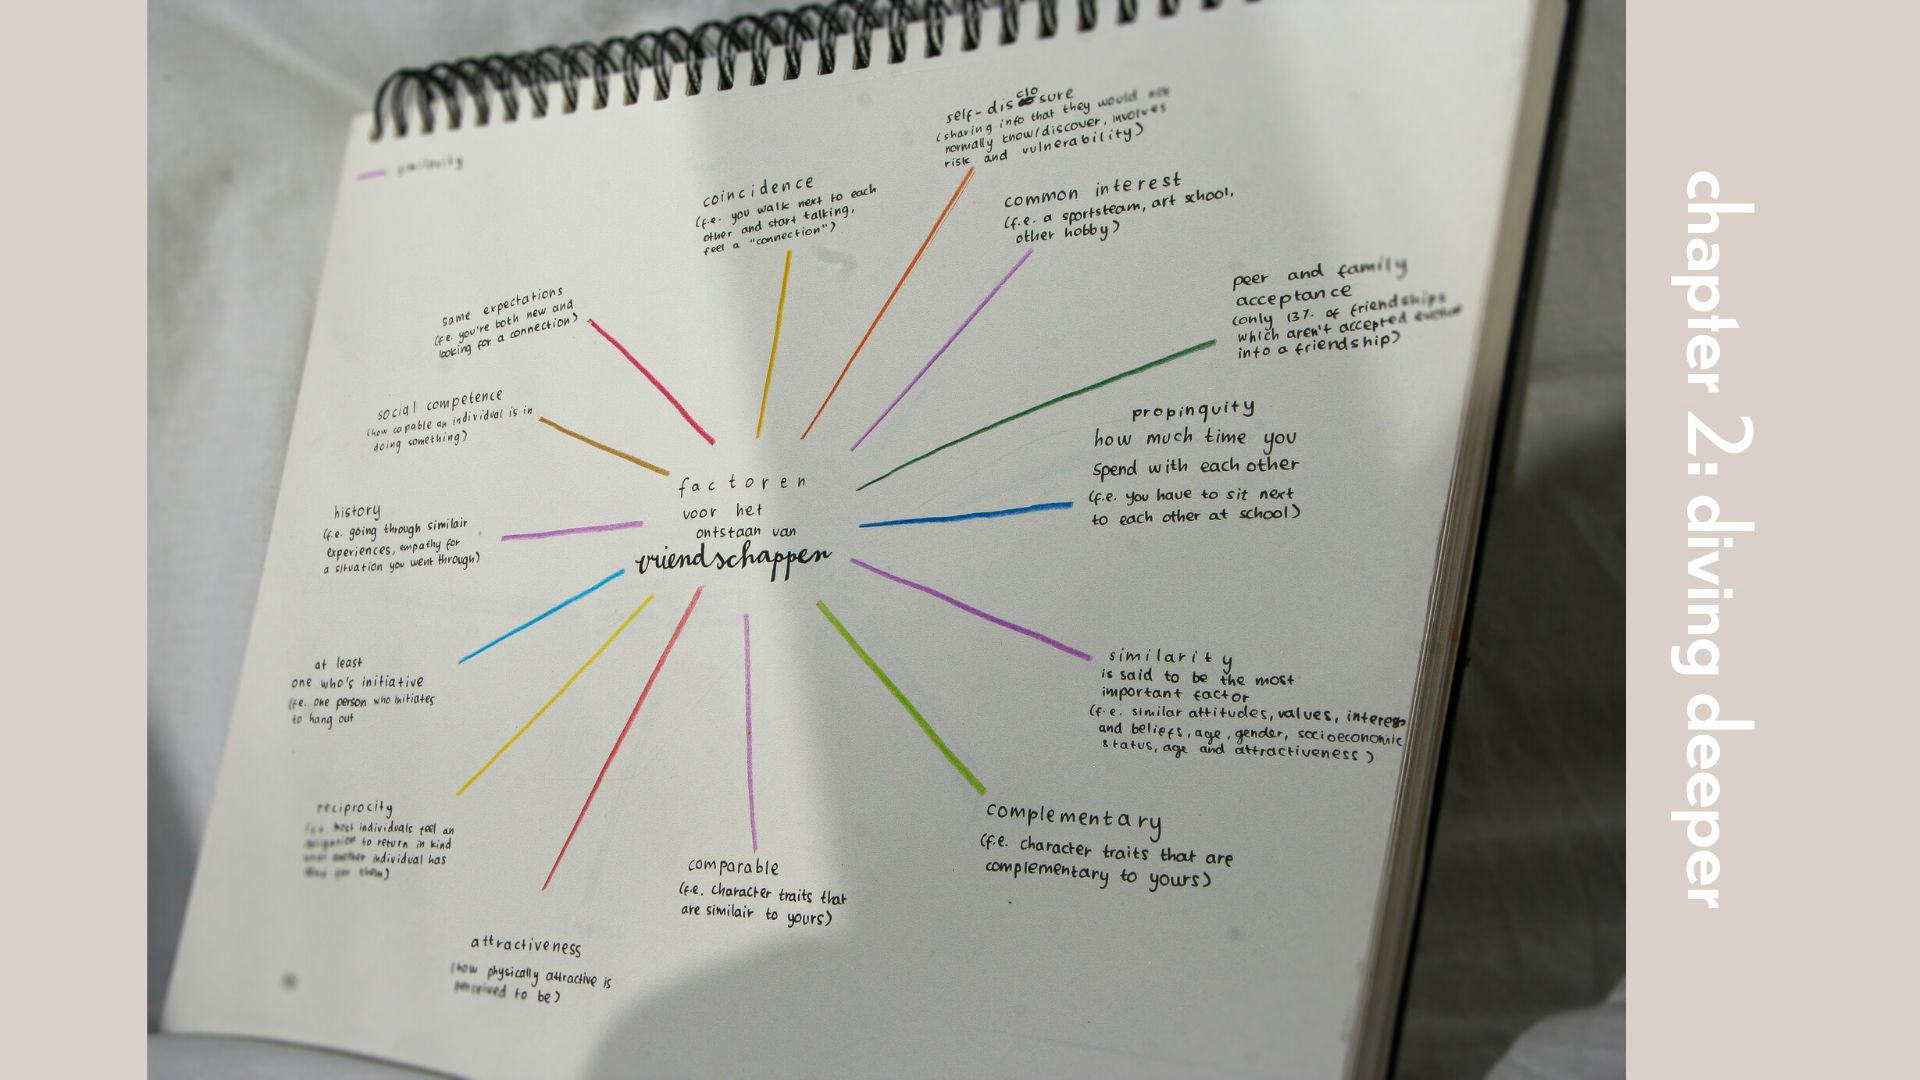 similarity
self-disclosure
(sharing info that they would not
normally know/discover, involves
risk and vulnerability)
coincidence
(f.e. you walk next to each
other and start talking,
feel a "connection")
common interest
(f.e. a sportsteam, art school,
other hobby)
peer and family
acceptance
(only 13% of friendships
which aren't accepted
into a friendship)
same expectations
(f.e. you're both new and
looking for a connection)
social competence
(how capable an individual is in
doing something)
propinquity
how much time you
spend with each other
(f.e. you have to sit next
to each other at school)
factoren
voor het
ontstaan van
vriendschappen
history
(f.e. going through similair
experiences, empathy for
a situation you went through)
at least
one who's initiative
(f.e. one person who initiates
to hang out
similarity
is said to be the most
important factor
(f.e. similar attitudes, values, interests
and beliefs, age, gender, socioeconomic
status, age and attractiveness)
reciprocity
(f.e. most individuals feel an
obligation to return in kind
when another individual has
them)
comparable
(f.e. character traits that
are similair to yours)
complementary
(f.e. character traits that are
complementary to yours)
attractiveness
(how physically attractive is
perceived to be)
chapter 2: diving deeper